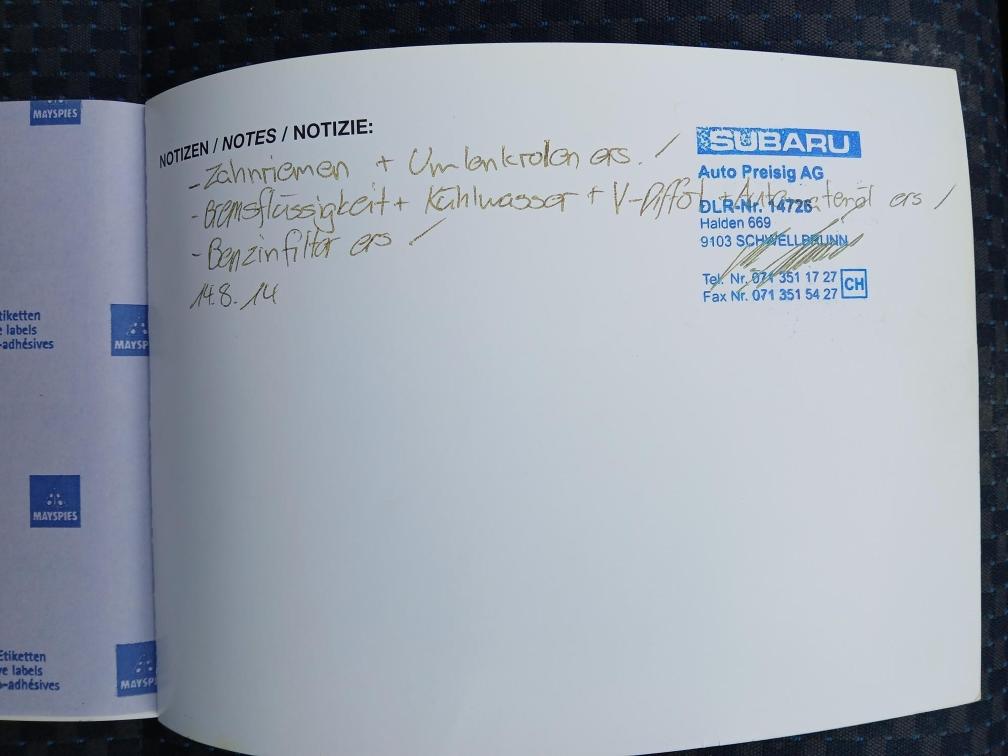 MAYSPIES
tiketten
e labels
-adhésives
MAYSP
MAYSPIES
Etiketten
ve labels
o-adhésives
MAYSP
NOTIZEN / NOTES / NOTIZIE:
- Zahnriemen + Umlenkrolen ers. /
- Bremsflüssigkeit + Kühlwasser + V-Difföl + ers /
- Benzinfilter ers /
14.8.14
SUBARU
Auto Preisig AG
DLR-Nr. 14726
Halden 669
9103 SCHWELLBRUNN
Tel. Nr. 071 351 17 27
Fax Nr. 071 351 54 27
CH